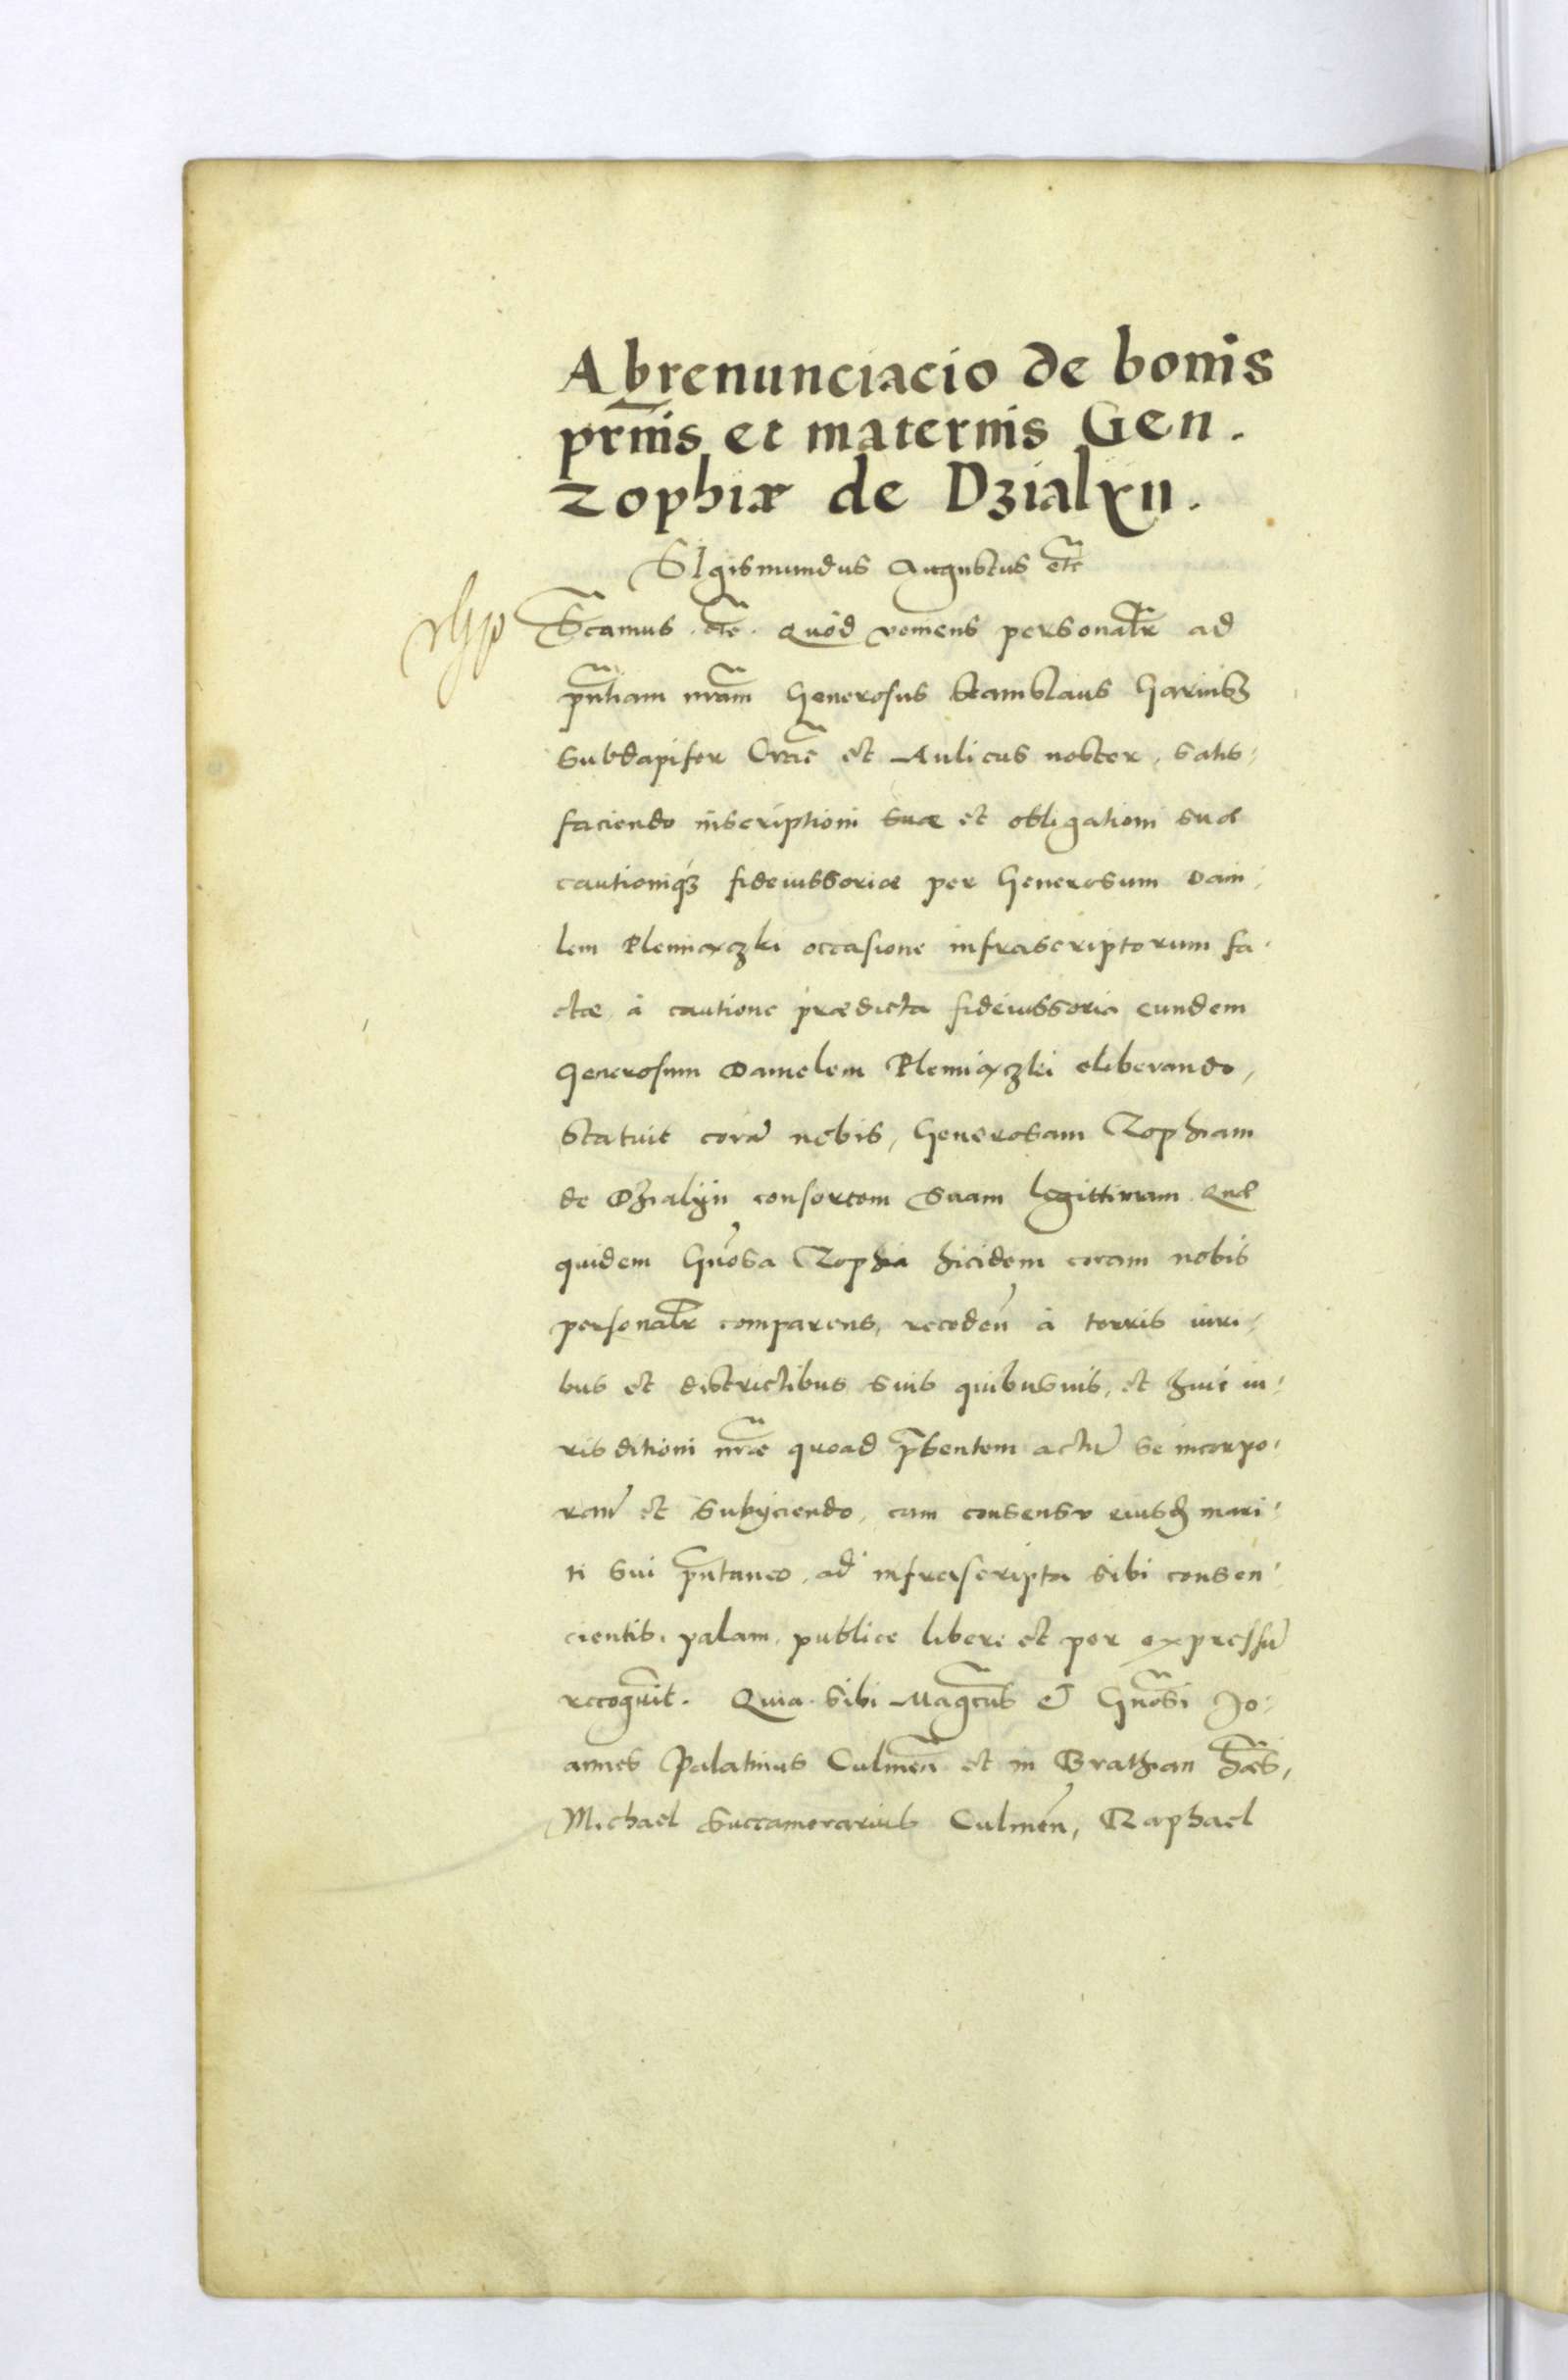 Abrenunciacio de bonis
prnis et maternis Gen.
Zophiæ de Dzialyn.
SIgismundus Augustus etc
Scamus. etc. Quòd veniens personalr ad
pntiam nram Generosus Stanislaus
Subdapifer Crac et Aulicus noster, satis-
faciendo inscriptioni suæ et obligationi suæ
cautioniq3 fideiussoriæ per Generosum Dani-
lem Plemiączki occasione infrascriptorum fa-
ctæ, à cautione prædicta fideiussoria eundem
Generosum Danielem Plemiączki eliberando,
Statuit corā nobis, Generosam Zophiam
de Dzialyn consortem Suam legittimam. Quæ
quidem Gnosa Zophia hicidem coram nobis
personalr comparens, recedeń à terris iuri-
bus et districtibus suis quibusuis, et huic iu-
risditioni nræ quoad psentem actū se incorpo-
ran et subijciendo, cum consensu eiusd mari-
ti sui pntaneo, ad infrascripta sibi consen-
cientib. palam, publice libere et per expressū
recognuit. Quia sibi Magcus et Gnosi Jo-
annes Palatinus Culmen et in Brathian hæs,
Michael Succamerarius Culmeń, Raphael